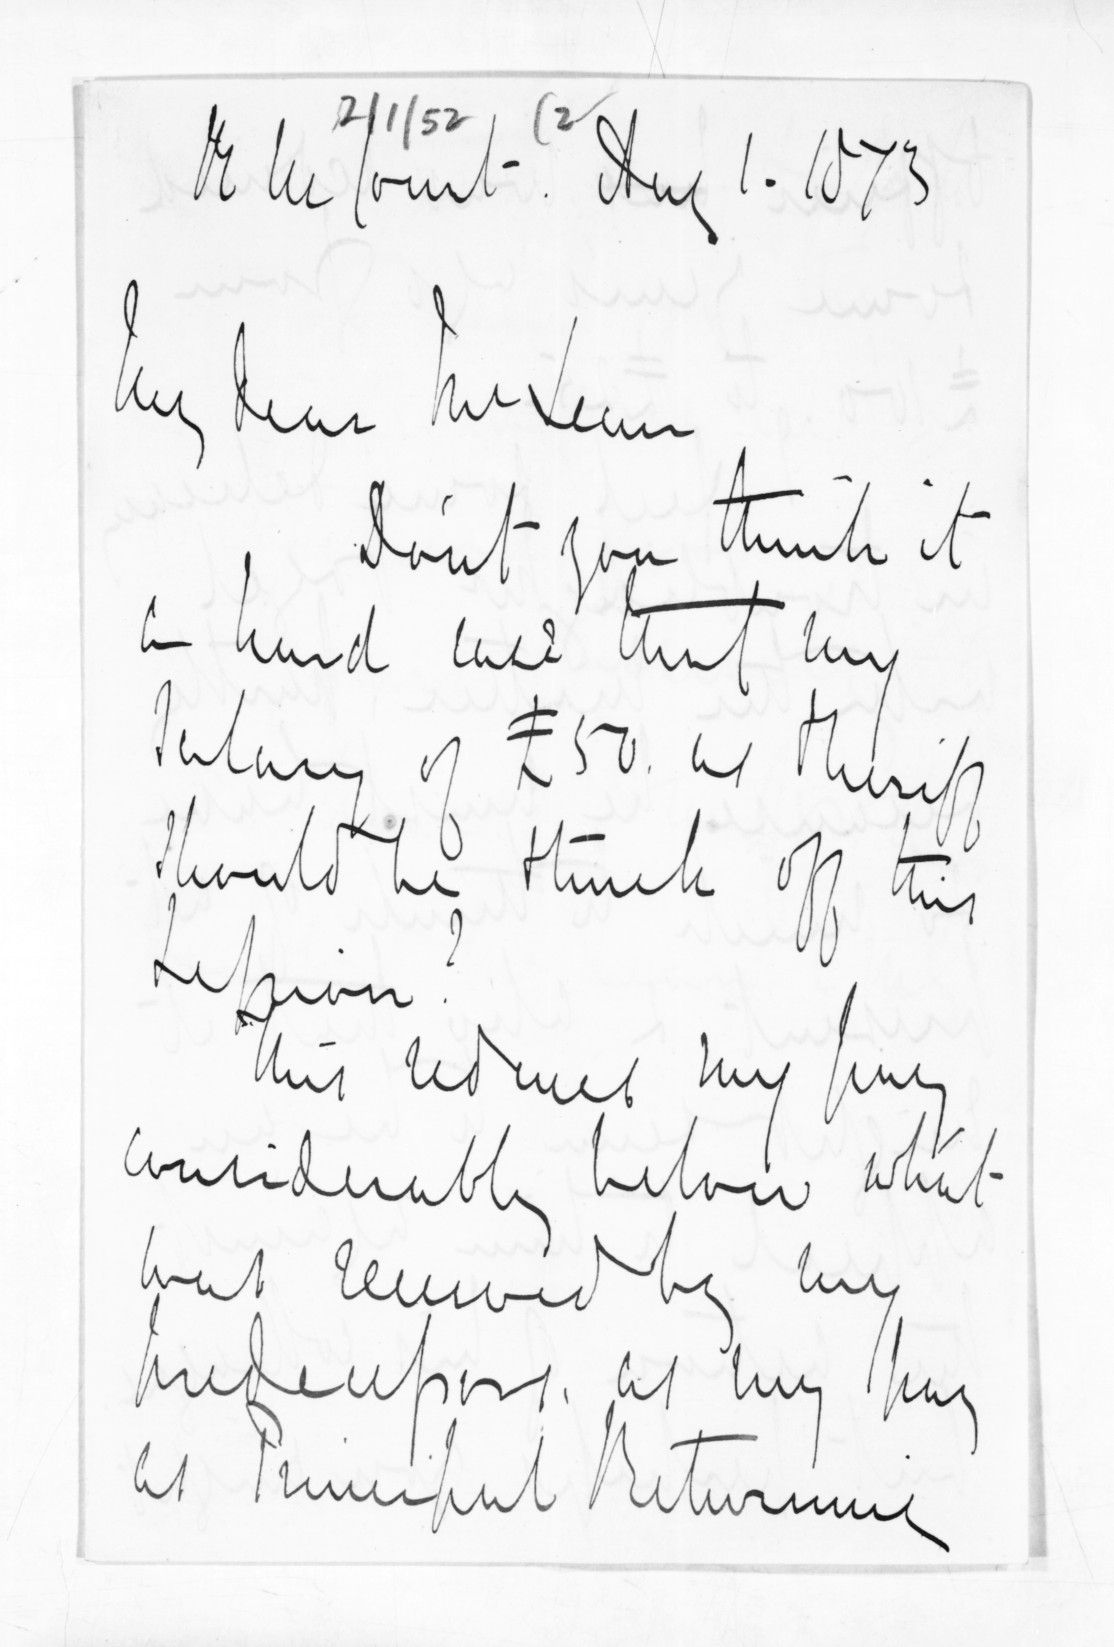 2/1/52 (2
R M Court. Aug 1. 1873
My dear McLean
Don't you think it
a hard case that my
salary of £50. as Sheriff
should be struck off this
Session?
This reduces my pay
considerably below what
was received by my
predecessors. as my pay
as Principal Returning